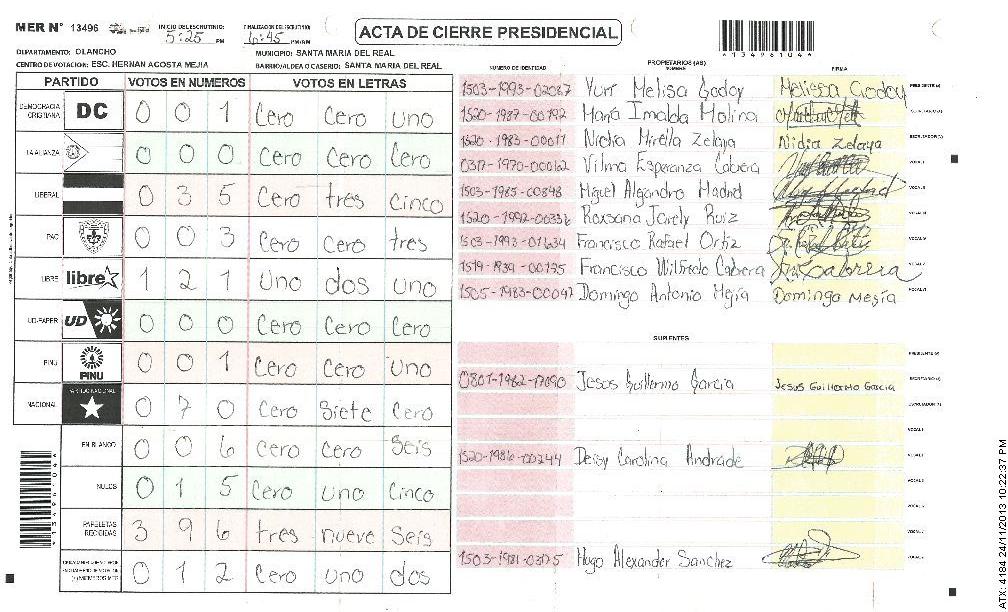 MER N° 13496
INICIO DEL ESCRUTINIO: 5:25 PM
FINALIZACION DEL ESCRUTINIO: 6:45 PM/AM
ACTA DE CIERRE PRESIDENCIAL
*13496104*
DEPARTAMENTO: OLANCHO
MUNICIPIO: SANTA MARIA DEL REAL
CENTRO DE VOTACION: ESC. HERNAN ACOSTA MEJIA
BARRIO/ALDEA O CASERIO: SANTA MARIA DEL REAL
PARTIDO VOTOS EN NUMEROS VOTOS EN LETRAS
DEMOCRACIA CRISTIANA DC 0 0 1 Cero Cero uno
LA ALIANZA 0 0 0 Cero Cero Cero
LIBERAL 0 3 5 Cero tres cinco
PAC 0 0 3 Cero Cero tres
LIBRE libre 1 2 1 Uno dos uno
UD-FAPER UD 0 0 0 Cero Cero Cero
PINU PINU 0 0 1 Cero Cero Uno
NACIONAL PARTIDO NACIONAL 0 7 0 Cero Siete Cero
EN BLANCO 0 0 6 Cero Cero Seis
NULOS 0 1 5 Cero uno Cinco
PAPELETAS RECIBIDAS 3 9 6 tres nueve Seis
0 1 2 Cero uno dos
PROPIETARIOS (AS)
NUMERO DE IDENTIDAD NOMBRE FIRMA
1503-1993-02067 Yury Melisa Godoy Melissa Godoy PRESIDENTE (A)
1520-1987-00192 Maria Imalda Molina SECRETARIO (A)
1520-1983-00017 Nidia Mirella Zelaya Nidia Zelaya ESCRUTADOR (A)
0317-1970-00062 Vilma Esperanza Cabrera VOCAL I
1503-1985-00848 Miguel Alejandro Madrid VOCAL II
1520-1992-00336 Roxsana Jarely Ruiz VOCAL III
1503-1993-01634 Francisco Rafael Ortiz VOCAL IV
1519-1939-00195 Francisco Wilfredo Cabrera VOCAL V
1505-1983-00047 Domingo Antonio Mejia Domingo Mejía VOCAL VI
SUPLENTES
PRESIDENTE (A)
0801-1962-17090 Jesus Guillermo Garcia Jesus Guillermo Garcia SECRETARIO (A)
ESCRUTADOR (A)
VOCAL I
1520-1986-00244 Deisy Carolina Andrade VOCAL II
1503-1981-03175 Hugo Alexander Sanchez
*13496104*
ATX: 4184 24/11/2013 10:22:37 PM